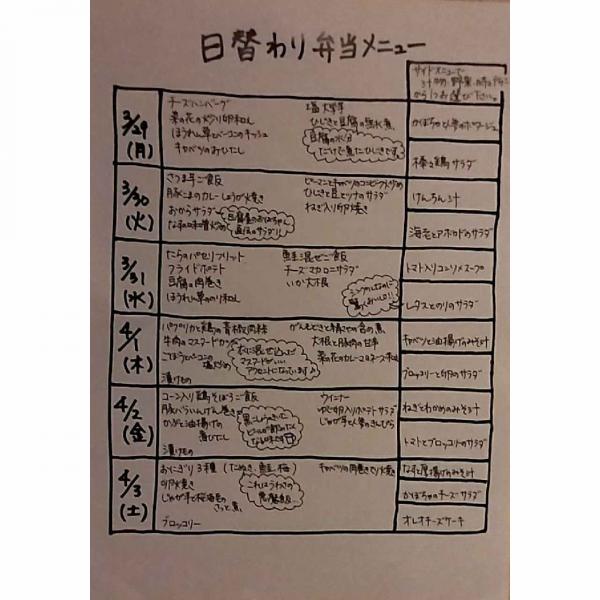 日替わり弁当メニュー
サイドメニューで
から1つお選び下さい。
3/29
(月)
チーズハンバーグ
菜の花の炒り卵和え
ほうれん草とベーコンのキッシュ
キャベツのおひたし
塩大学芋
ひじきと豆腐の
豆腐の水分
だけで煮たひじきです
かぼちゃと人参のポタージュ
棒々鶏サラダ
3/30
(火)
さつま芋ご飯
豚こまのカレーしょうが焼き
おからサラダ
豆腐屋のおばちゃん
直伝のサラダ!
ピーマンとキャベツのコンビーフ炒め
ひじきと豆とツナのサラダ
ねぎ入り卵焼き
けんちん汁
海老とアボカドのサラダ
3/31
(水)
たらのパセリフリット
フライドポテト
豆腐の肉巻き
ほうれん草ののり和え
鮭混ぜご飯
チーズマカロニサラダ
いか大根
シンプルなのに
驚くおいしさ!
トマト入りコンソメスープ
レタスとのりのサラダ
4/1
(木)
パプリカと鶏の青椒肉絲
牛肉のマスタードカツ
ごぼうとベーコンの
塩炒め
漬けもの
衣に混ぜ込んだ
マスタードがいい
アクセントになっています♪
大根と豚肉の甘辛
菜の花のカレーマヨネーズ和え
キャベツと油揚げのみそ汁
ブロッコリーと卵のサラダ
4/2
(金)
コーン入り鶏そぼろご飯
豚バラいんげん巻き
かぶと油揚げの
煮びたし
漬けもの
黒こしょうきいた
ビールが飲みたく
なる味です
ウインナー
ゆで卵入りポテトサラダ
じゃが芋と人参のきんぴら
ねぎとわかめのみそ汁
トマトとブロッコリーのサラダ
4/3
(土)
おにぎり3種(たぬき、鮭、梅)
卵焼き
じゃが芋と桜海老の
さっと煮
ブロッコリー
これはうわさの
悪魔飯…
キャベツの肉巻き照り焼き
なすと厚揚げのみそ汁
かぼちゃのチーズサラダ
オレオチーズケーキ